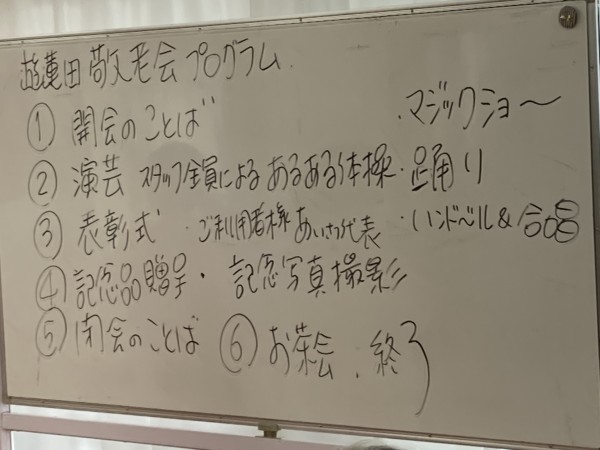 遊蓮田 敬老会 プログラム
① 開会のことば ・マジックショー
② 演芸 スタッフ全員による あるある体操・踊り
③ 表彰式 ・ご利用者様 あいさつ代表 ・ハンドベル&合唱
④ 記念品贈呈・記念写真撮影
⑤ 閉会のことば ⑥ お茶会・終了